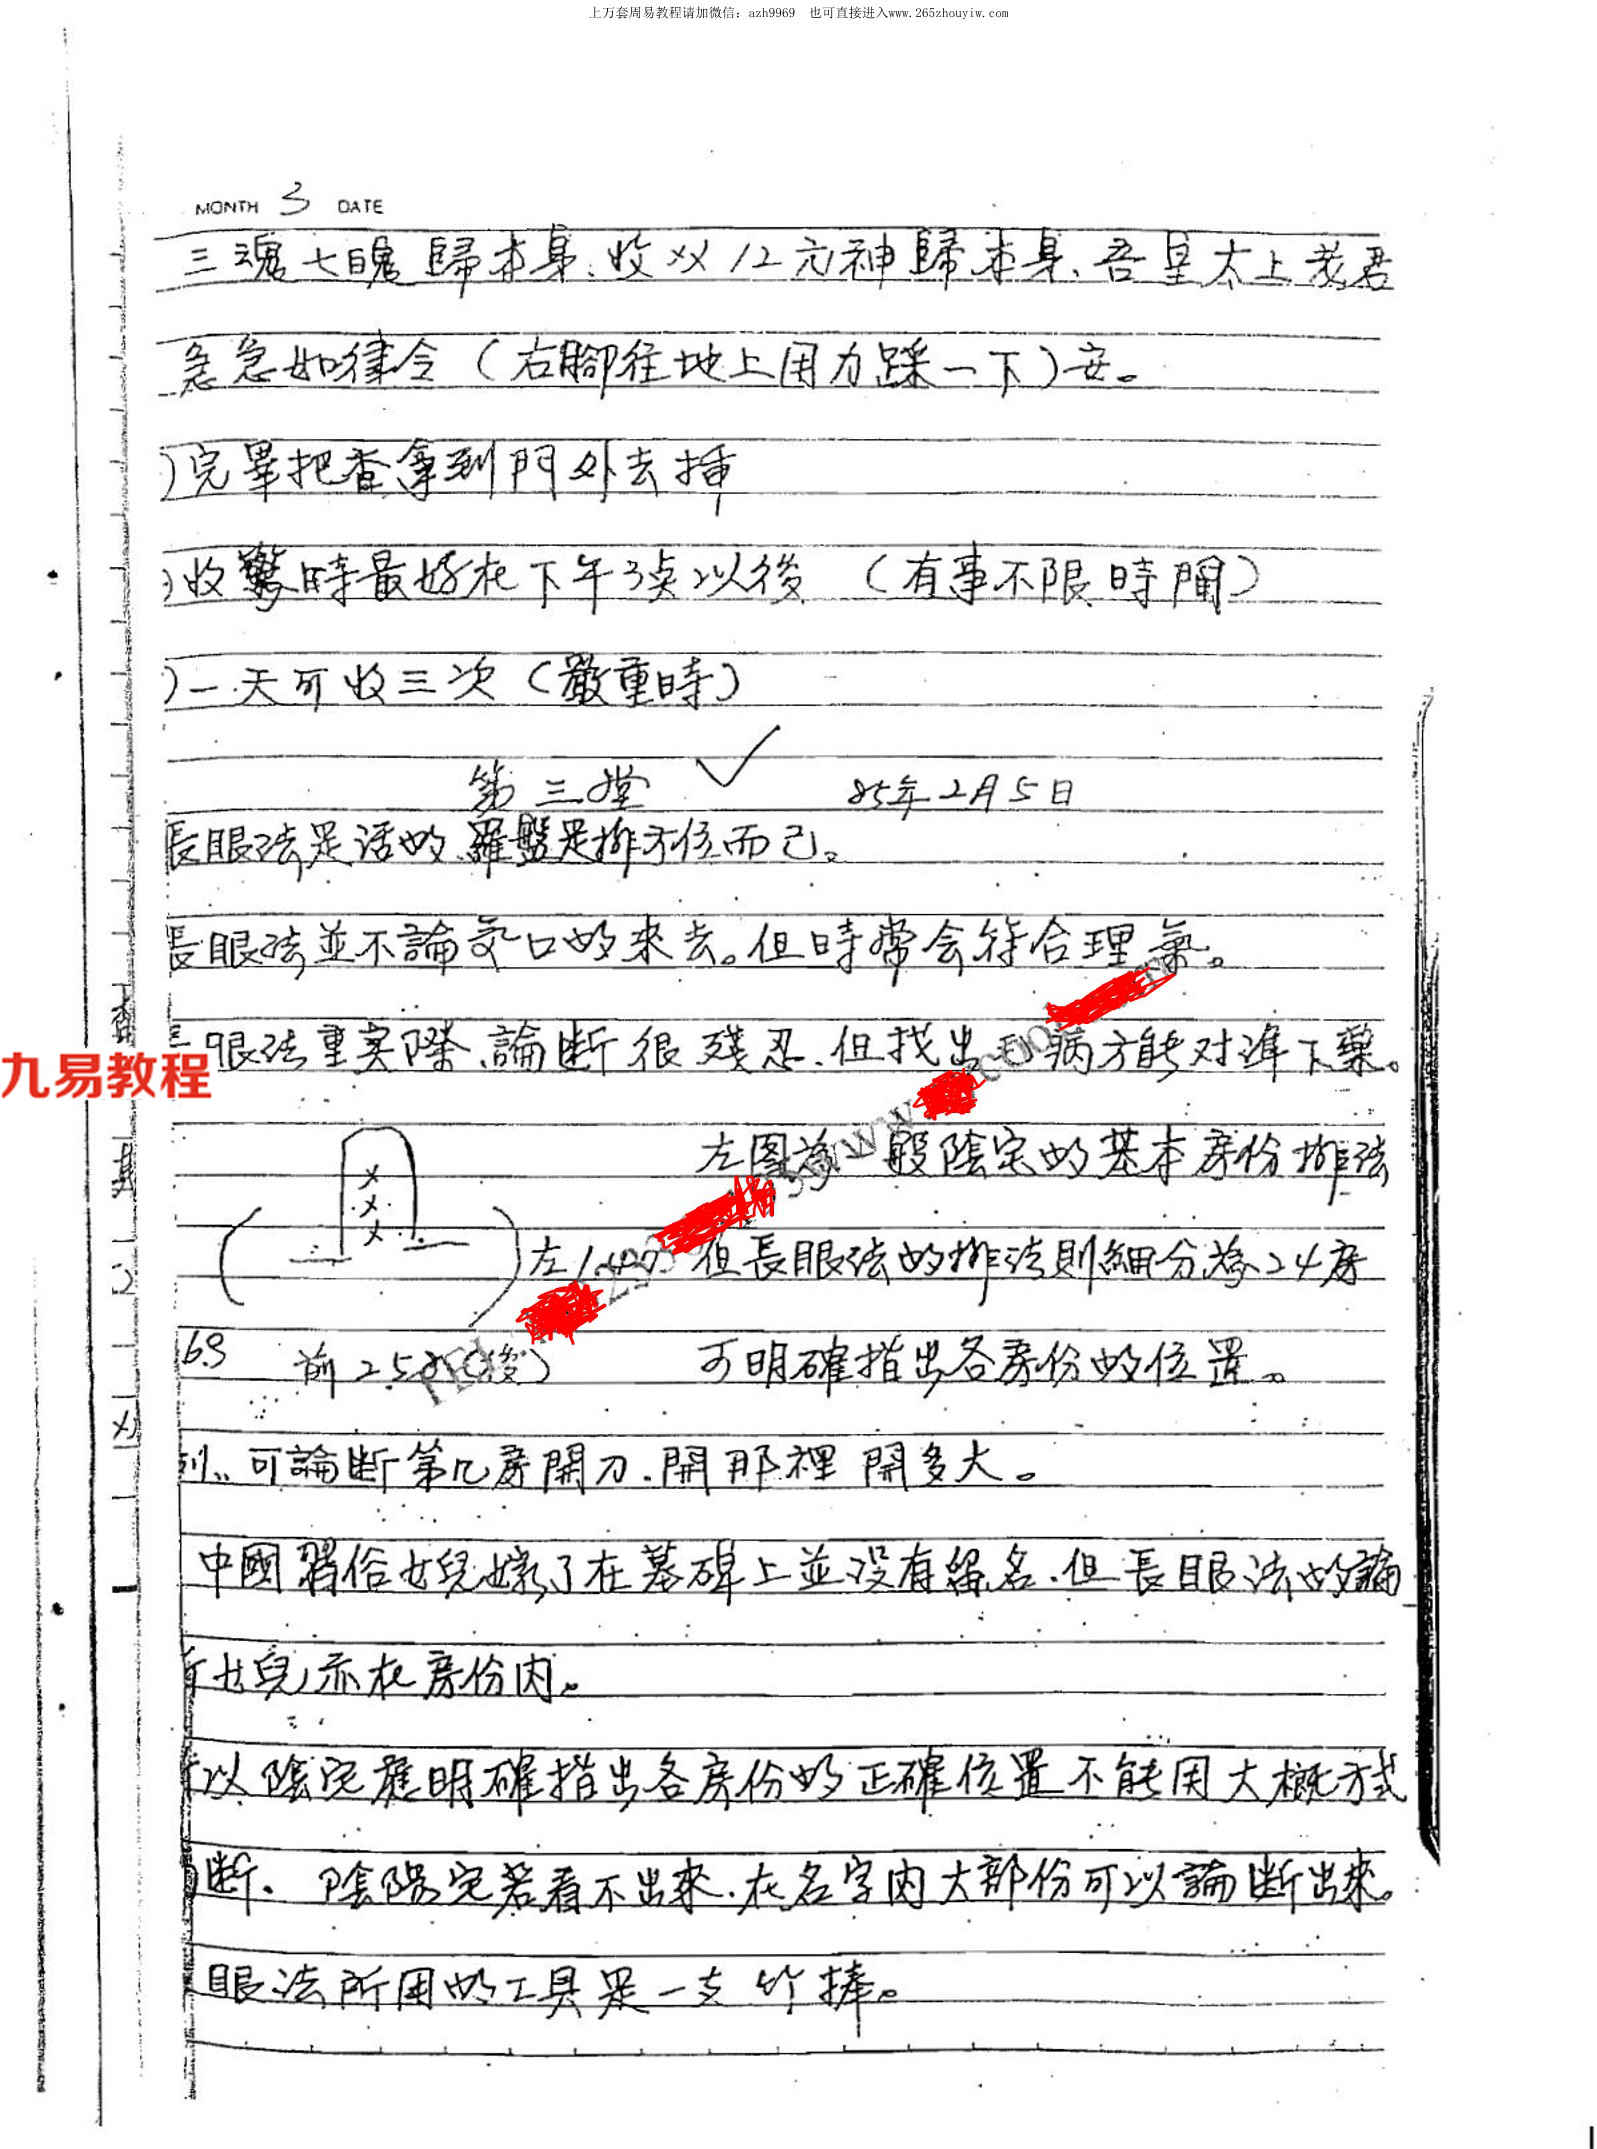 上万套周易教程请加微信: azh9969 也可直接进入www.265zhouyiw.com
MONTH 3 DATE
三魂七魄歸本身、收XX12元神歸本身、吾皇太上老君
急急如律令(右腳往地上用力踩一下)安。
)完畢把香拿到門外去插
)收驚時最好在下午3点以後 (有事不限時間)
)一天可收三次(嚴重時)
第三堂 85年2月5日
長眼法是活的、羅盤是排方位而己。
長眼法並不論交口的來去。但時常会符合理氣。
眼法重实際、論断很殘忍、但找出 病方能对準下藥。
九易教程
左图為一般陰宅的基本房份排法
左147 但長眼法的排法則細分為24房
63 前258(後) 可明確指出各房份的位置。
可論断第几房開刀、開那裡 開多大。
中國習俗女兒嫁了在墓碑上並没有留名、但長眼法的論
女兒亦在房份内。
以陰宅應明確指出各房份的正確位置不能用大概方式
断、陰陽宅若看不出來、在名字内大部份可以論断出來。
眼法所用的工具是一支竹棒。